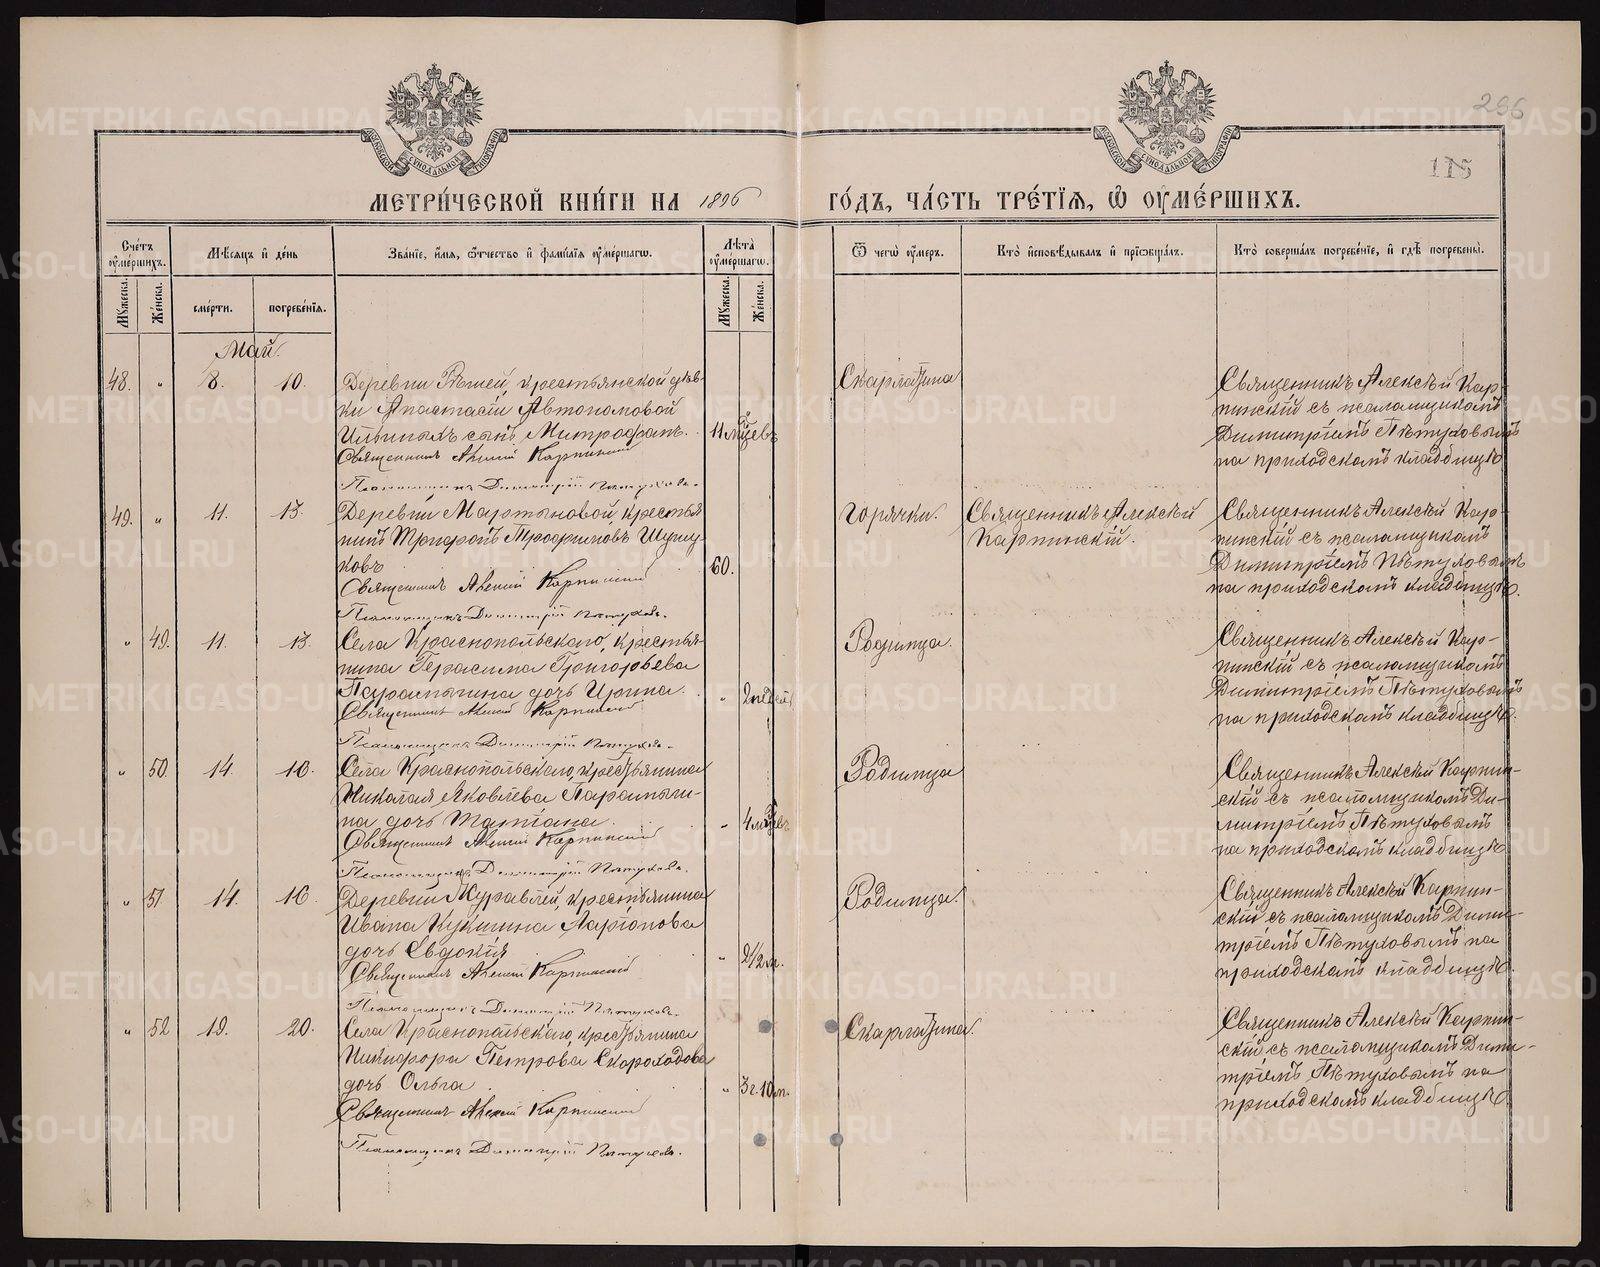 286
115
МОСКОВСКОЙ СѴНОДАЛЬНОЙ ТИПОГРАФІИ
МОСКОВСКОЙ СѴНОДАЛЬНОЙ ТИПОГРАФІИ
МЕТРИ́ЧЕСКОЙ КНИ́ГИ НА 1896 ГО́ДЪ, ЧА́СТЬ ТРЕ́ТЇѦ, Ѡ҆ ОУ҆МЕ́РШИХЪ.
Сче́тъ оу҆ме́ршихъ.
Мѣ́сѧцъ и҆ де́нь
Зва́нїе, и҆́мѧ, ѻ҆́тчество и҆ фами́лїѧ оу҆ме́ршагѡ.
Лѣ́та оу҆ме́ршагѡ.
Ѿ чегѡ̀ оу҆́меръ.
Кто̀ и҆сповѣ́дывалъ и҆ прїѡбща́лъ.
Кто̀ соверша́лъ погребе́нїе, и҆ гдѣ̀ погребены̀.
Мꙋ́жеска.
Же́нска.
сме́рти.
погребе́нїѧ.
Мꙋ́жеска.
Же́нска.
Май.
48. „ 8. 10.
крестьянской дѣв-
ки Анастасіи Автономовой
Ильиныхъ сынъ Митрофанъ.
11 мѣсяцевъ
Священникъ Алексій Карпинскій
Псаломщикъ Димитрій Пѣтуховъ.
Скарлатина
Священникъ Алексѣй Кар-
пинскій съ псаломщикомъ
Димитріемъ Пѣтуховымъ
на приходскомъ кладбищѣ
49. „ 11. 13.
Деревни Мартыновой, крестья-
нинъ Трифонъ Трофимовъ
60.
Священникъ Алексій Карпинскій
Псаломщикъ Димитрій Пѣтуховъ.
Горячки.
Священникъ Алексѣй
Карпинскій.
Священникъ Алексѣй Кар-
пинскій съ псаломщикомъ
Димитріемъ Пѣтуховымъ
на приходскомъ кладбищѣ.
„ 49. 11. 13.
Села Краснопольскаго, крестья-
нина Герасима Григорьева
Парамыгина дочь Ирина.
„ 2 недѣль
Священникъ Алексій Карпинскій
Псаломщикъ Димитрій Пѣтуховъ.
Родимца.
Священникъ Алексѣй Кар-
пинскій съ псаломщикомъ
Димитріемъ Пѣтуховымъ
на приходскомъ кладбищѣ.
„ 50. 14. 16.
Села Краснопольскаго, крестьянина
Николая Яковлева Парамыги-
на дочь Татіана.
„ 4 мѣсяцевъ
Священникъ Алексій Карпинскій
Псаломщикъ Димитрій Пѣтуховъ.
Родимца
Священникъ Алексѣй Карпин-
скій съ псаломщикомъ Ди-
митріемъ Пѣтуховымъ
на приходскомъ кладбищѣ
„ 51 14. 16.
Деревни Журавлей, крестьянина
Ивана Кукшина Ларіонова
дочь Евдокія
„ 2 1/2 м.
Священникъ Алексій Карпинскій
Псаломщикъ Димитрій Пѣтуховъ.
Родимца.
Священникъ Алексѣй Карпин-
скій съ псаломщикомъ Дими-
тріемъ Пѣтуховымъ на
приходскомъ кладбищѣ.
„ 52 19. 20.
Села Краснопольскаго, крестьянина
Никифора Петрова Скороходова
дочь Ольга
„ 3 г. 10 м.
Священникъ Алексій Карпинскій
Псаломщикъ Димитрій Пѣтуховъ.
Скарлатина.
Священникъ Алексѣй Карпин-
скій съ псаломщикомъ Дими-
тріемъ Пѣтуховымъ на
приходскомъ кладбищѣ.
METRIKI.GASO-URAL.RU